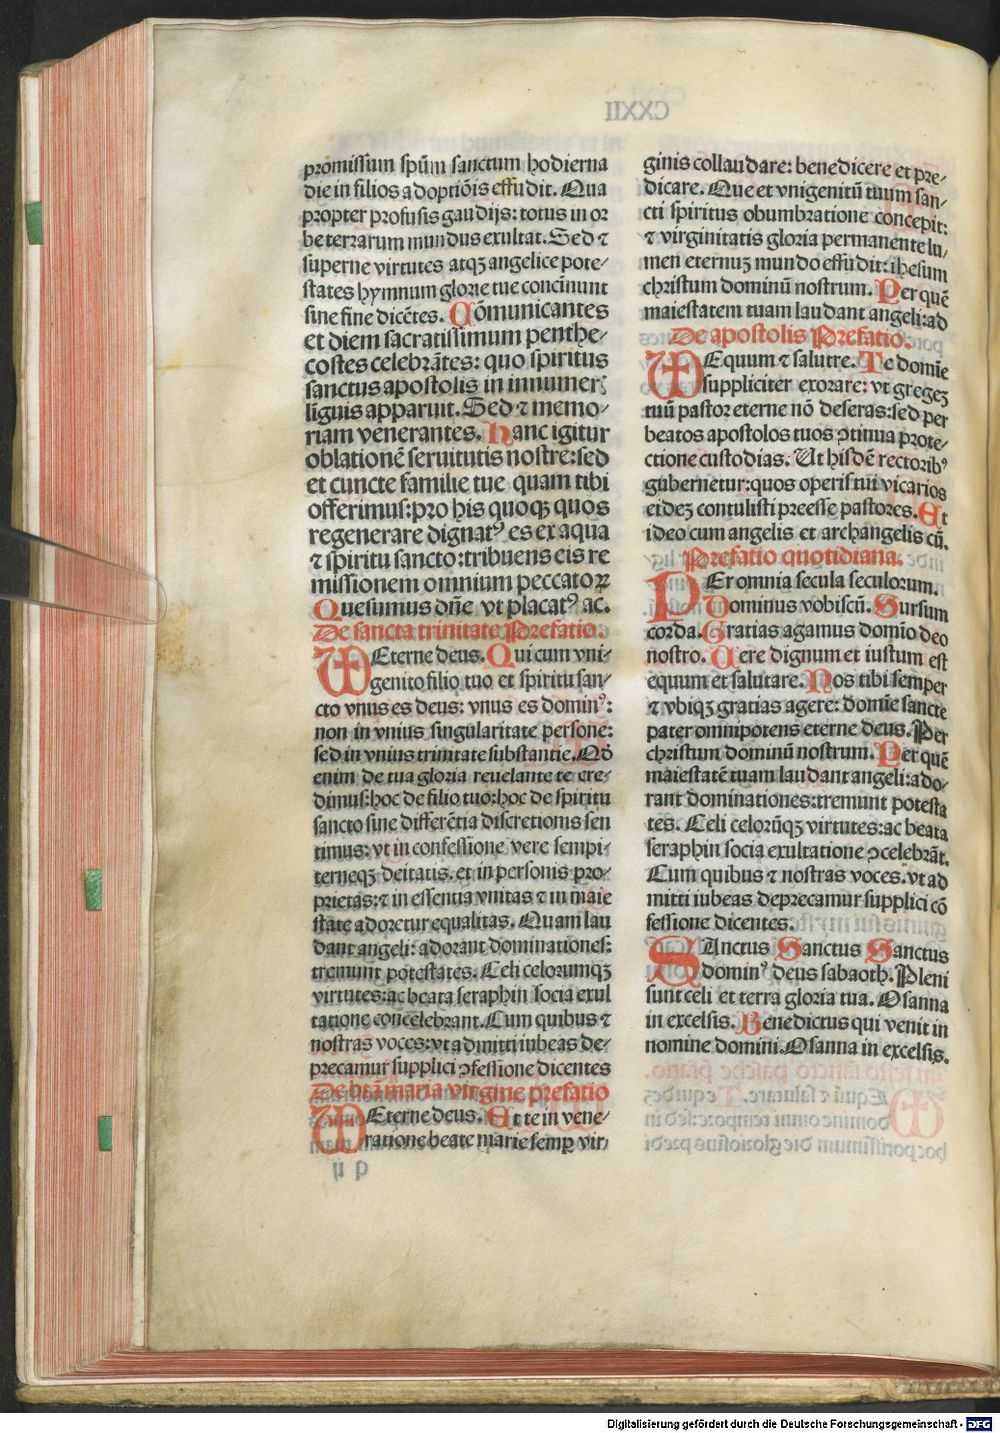 promissum spūm sanctum hodierna
die in filios adoptiōis effudit. Qua
propter profusis gaudijs: totus in or
be terrarum mundus exultat. Sed ⁊
superne virtutes atqꝫ angelice pote⸗
states hymnum glorie tue concinunt
sine fine dicētes. Cōmunicantes
et diem sacratissimum penthe⸗
costes celebrātes: quo spiritus
sanctus apostolis in innumerꝭ
līguis apparuit. Sed ⁊ memo⸗
riam venerantes. Hanc igitur
oblationē seruitutis nostre: sed
et cuncte familie tue quam tibi
offerimus: pro his quoqꝫ quos
regenerare dignatꝰ es ex aqua
⁊ spiritu sancto: tribuens eis re
missionem omnium peccatoꝝ
Quesumus dn̄e vt placatꝰ ac.
De sancta trinitate Prefatio.
VEterne deus. Qui cum vni⸗
genito filio tuo et spiritu san⸗
cto vnus es deus: vnus es dominꝰ:
non in vnius singularitate persone:
sed in vnius trinitate substantie. Qd̄
enim de tua gloria reuelante te cre⸗
dimus: hoc de filio tuo: hoc de spiritu
sancto sine differētia discretionis sen
timus: vt in confessione vere sempi⸗
terneqꝫ deitatis. et in personis pro⸗
prietas: ⁊ in essentia vnitas ⁊ in maie
state adoretur equalitas. Quam lau
dant angeli: adorant dominationes:
tremunt potestates. Celi celorumqꝫ
virtutes: ac beata seraphin socia exul
tatione concelebrant. Cum quibus ⁊
nostras voces: vt admitti iubeas de⸗
precamur supplici ꝯfessione dicentes
De btā maria virgine prefatio
VEterne deus. Et te in vene⸗
ratione beate marie semꝑ vir⸗
ginis collaudare: benedicere et pre⸗
dicare. Que et vnigenitū tuum san⸗
cti spiritus obumbratione concepit:
⁊ virginitatis gloria permanente lu⸗
men eternuꝫ mundo effudit: ihesum
christum dominū nostrum. Per quē
maiestatem tuam laudant angeli: ad
De apostolis Prefatio.
VEquum ⁊ salutre. Te domīe
suppliciter exorare: vt gregeꝫ
tuū pastor eterne nō deseras: sed per
beatos apostolos tuos ꝯtinua prote⸗
ctione custodias. Ut hisdē rectoribꝰ
gubernetur: quos operis tui vicarios
eideꝫ contulisti preesse pastores. Et
ideo cum angelis et archangelis cū.
Prefatio quotidiana.
PEr omnia secula seculorum.
Dominus vobiscū. Sursum
corda. Gratias agamus domīo deo
nostro. Uere dignum et iustum est
equum et salutare. Nos tibi semper
⁊ vbiqꝫ gratias agere: domīe sancte
pater omnipotens eterne deus. Per
christum dominū nostrum. Per quē
maiestatē tuam laudant angeli: ado⸗
rant dominationes: tremunt potesta
tes. Celi celorūqꝫ virtutes: ac beata
seraphin socia exultatione ꝯcelebrāt.
Cum quibus ⁊ nostras voces. vt ad
mitti iubeas deprecamur supplici cō
fessione dicentes.
SAnctus Sanctus Sanctus
dominꝰ deus sabaoth. Pleni
sunt celi et terra gloria tua. Osanna
in excelsis. Benedictus qui venit in
nomine domini. Osanna in excelsis.
Digitalisierung gefördert durch die Deutsche Forschungsgemeinschaft - DFG